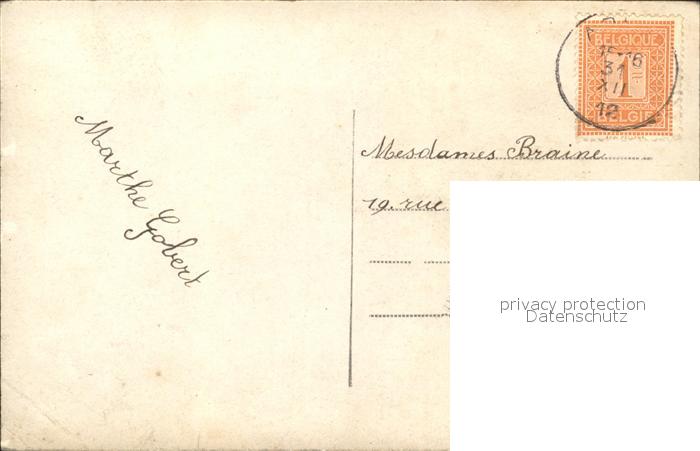 BELGIQUE
1
BELGIË
15-16
31
XII
12
Marthe Gobert
Mesdames Braine
19. rue
privacy protection
Datenschutz